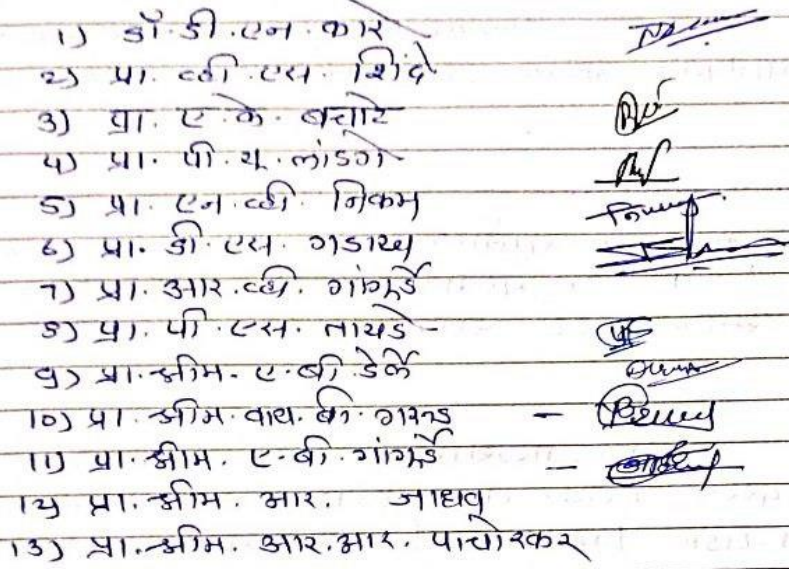 1) डॉ. डी. एन. कार
2) प्रा. व्ही एस. शिंदे
3) प्रा. ए. के. बचाटे
4) प्रा. पी. यू. लांडगे
5) प्रा. एन. व्ही. निकम
6) प्रा. डी. एस. गडाख
7) प्रा. आर. व्ही. गांगुर्डे
8) प्रा. पी. एस. तायडे -
9) प्रा. श्रीम. ए. बी. डेर्ले
10) प्रा. श्रीम. वाय. बी. गारुड -
11) प्रा. श्रीम. ए. बी. गांगुर्डे -
12) प्रा. श्रीम. आर. जाधव
13) प्रा. श्रीम. आर. आर. पाचोरकर